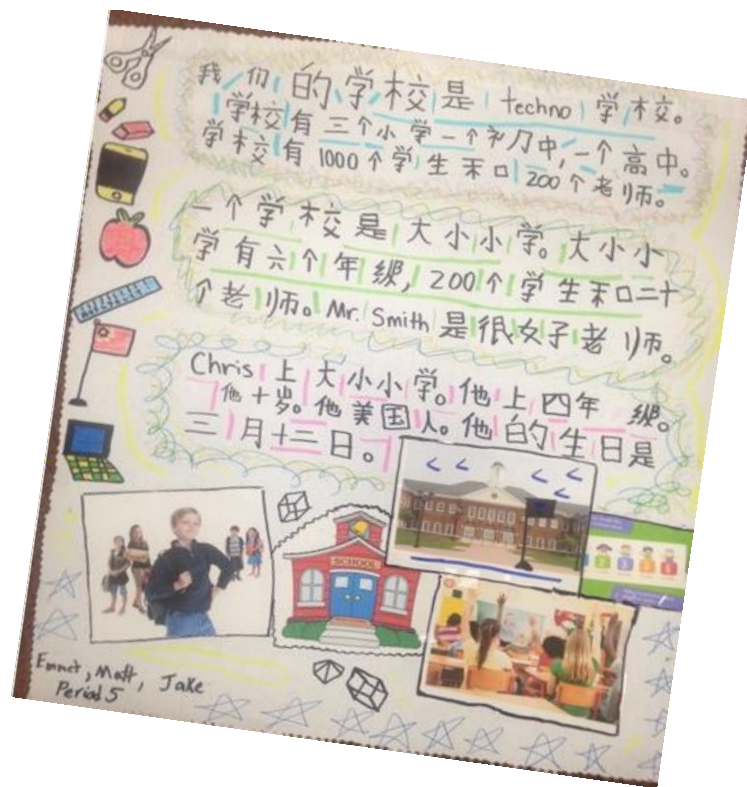 我们的学校是 techno 学校。
学校有三个小学一个初中,一个高中。
学校有 1000个学生和 200个老师。
一个学校是大小小学。大小小
学有六个年级, 200个学生和二十
个老师。Mr. Smith 是很好老师。
Chris 上大小小学。他上四年级。
他十岁。他美国人。他的生日是
三月十三日。
SCHOOL
Emmet, Matt, Jake
Period 5